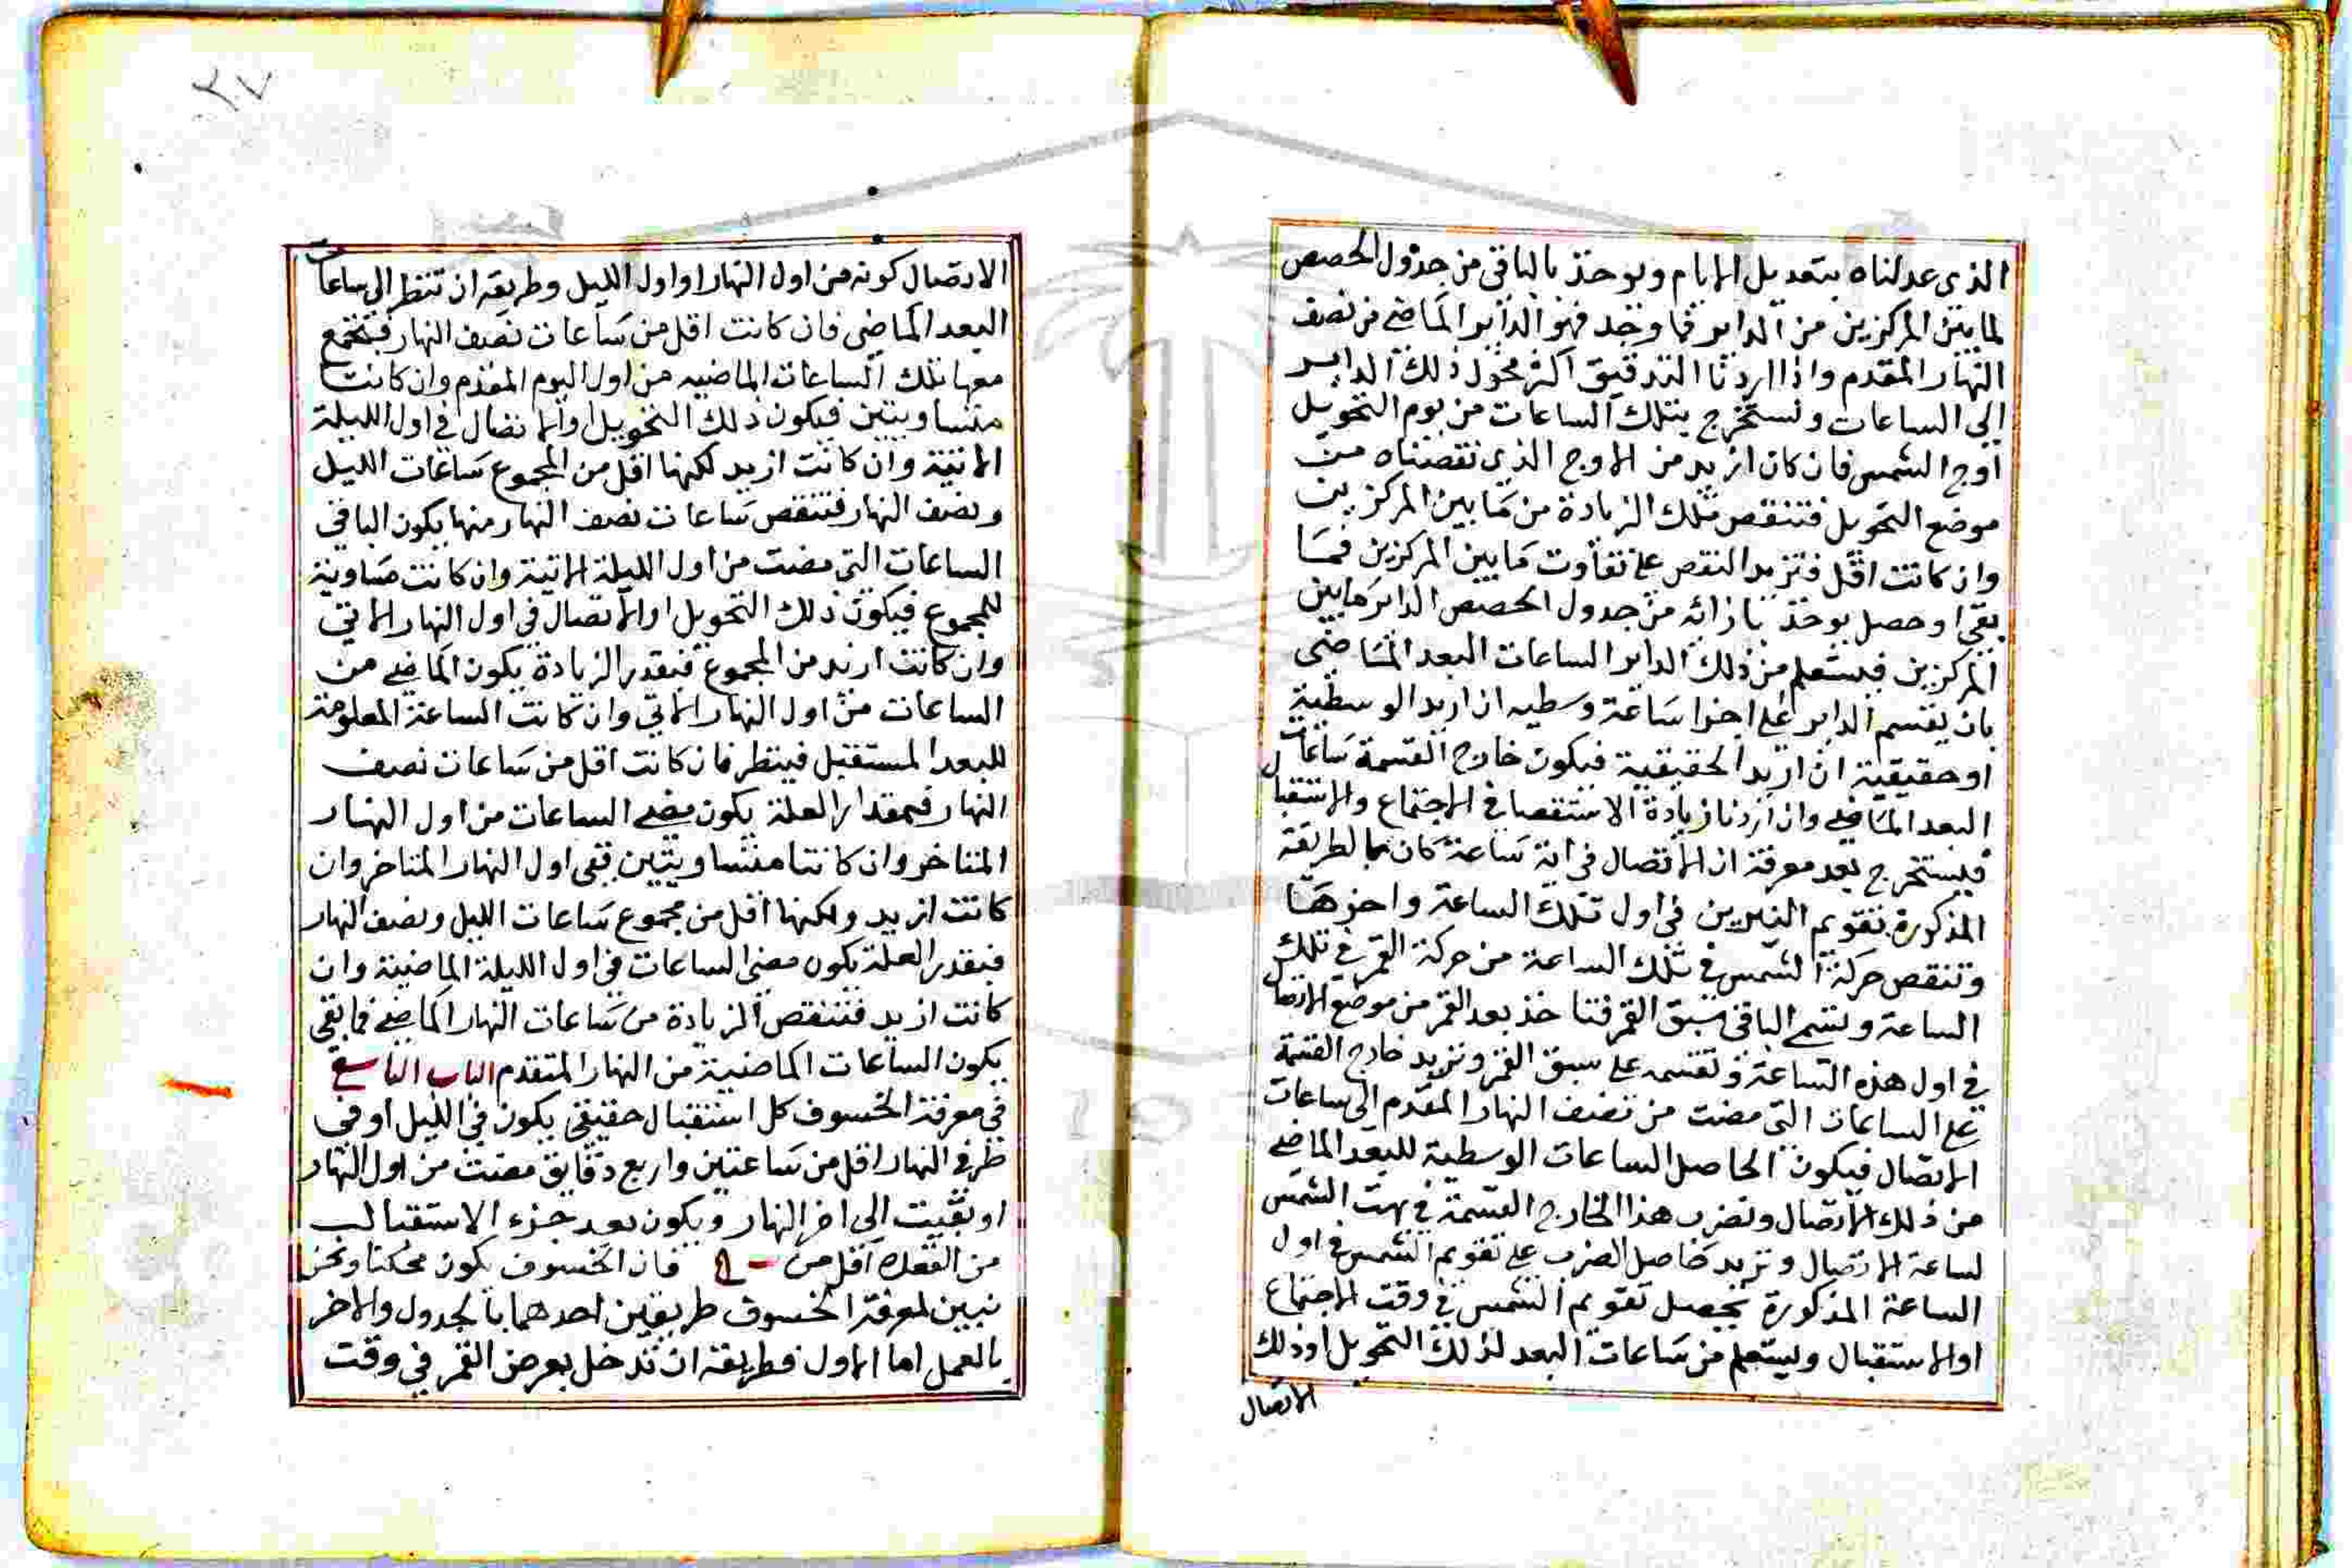 الذى عدلناه بتعديل الايام ويوخذ بالباقى من جدول الحصص
لما بين المركزين من الداير فما وجد فهو الداير الماضى من نصف
النهار المقدم واذا اردنا التدقيق اكثر نحول ذلك الداير
الى الساعات ونستخرج بتلك الساعات من يوم التحويل
اوج الشمس فان كان ازيد من الاوج الذى نقصناه من
موضع التحويل فتنقص تلك الزيادة من ما بين المركزين
وان كانت اقل فتزيد النقص على تفاوت ما بين المركزين فما
بقى او حصل يوخذ بازائه من جدول الحصص الداير ما بين
المركزين فيستعلم من ذلك الداير الساعات البعد الماضى
بان يقسم الداير على اجزا ساعة وسطيه ان اريد الوسطية
او حقيقية ان اريد الحقيقية فيكون خارج القسمة ساعات
البعد الماضى وان اردنا زيادة الاستقصا فى الاجتماع والاستقبال
فيستخرج بعد معرفة ان الاتصال فى اية ساعة كان بالطريقة
المذكورة تقويم النيرين فى اول تلك الساعة واخرها
وتنقص حركة الشمس فى تلك الساعة من حركة القمر فى تلك
الساعة ونسمى الباقى سبق القمر فتاخذ بعد القمر من موضع الاتصال
فى اول هذه الساعة وتقسمه على سبق القمر وتزيد خارج القسمة
على الساعات التى مضت من نصف النهار المقدم الى ساعات
الاتصال فيكون الحاصل الساعات الوسطية للبعد الماضى
من ذلك الاتصال وتضرب هذا الخارج القسمة فى بهت الشمس
لساعة الاتصال وتزيد حاصل الضرب على تقويم الشمس فى اول
الساعة المذكورة تحصل تقويم الشمس فى وقت الاجتماع
او الاستقبال ويستعلم من ساعات البعد لذلك التحويل او ذلك
الاتصال
٢٧
الاتصال كونه من اول النهار او اول الليل وطريقه ان تنظر الى ساعات
البعد الماضى فان كانت اقل من ساعات نصف النهار فتجمع
معها تلك الساعات الماضيه من اول اليوم المقدم وان كانت
متساويتين فيكون ذلك التحويل او الاتصال فى اول الليلة
الاتية وان كانت ازيد لكنها اقل من المجموع ساعات الليل
ونصف النهار فتنقص ساعات نصف النهار منها يكون الباقى
الساعات التى مضت من اول الليلة الاتية وان كانت مساوية
للمجموع فيكون ذلك التحويل او الاتصال فى اول النهار الاتى
وان كانت ازيد من المجموع فبقدر الزيادة يكون الماضى من
الساعات من اول النهار الاتى وان كانت الساعة المعلومة
للبعد المستقبل فينظر فان كانت اقل من ساعات نصف
النهار فبمقدار العلة يكون مضى الساعات من اول النهار
المتاخر وان كانتا متساويتين ففى اول النهار المتاخر وان
كانت ازيد ولكنها اقل من مجموع ساعات الليل ونصف النهار
فبقدر العلة يكون مضى الساعات فى اول الليلة الماضية وان
كانت ازيد فتنقص الزيادة من ساعات النهار الماضى فما بقى
يكون الساعات الماضية من النهار المتقدم الباب التاسع
فى معرفة الخسوف كل استقبال حقيقى يكون فى الليل او فى
طرفى النهار اقل من ساعتين واربع دقايق مضت من اول النهار
او بقيت الى اخر النهار ويكون بعد جزء الاستقبال
من العقدة اقل من فان الخسوف يكون ممكنا ونحن
نبين لمعرفة الخسوف طريقين احدهما بالجدول والاخر
بالعمل اما الاول فطريقه ان تدخل بعرض القمر فى وقت